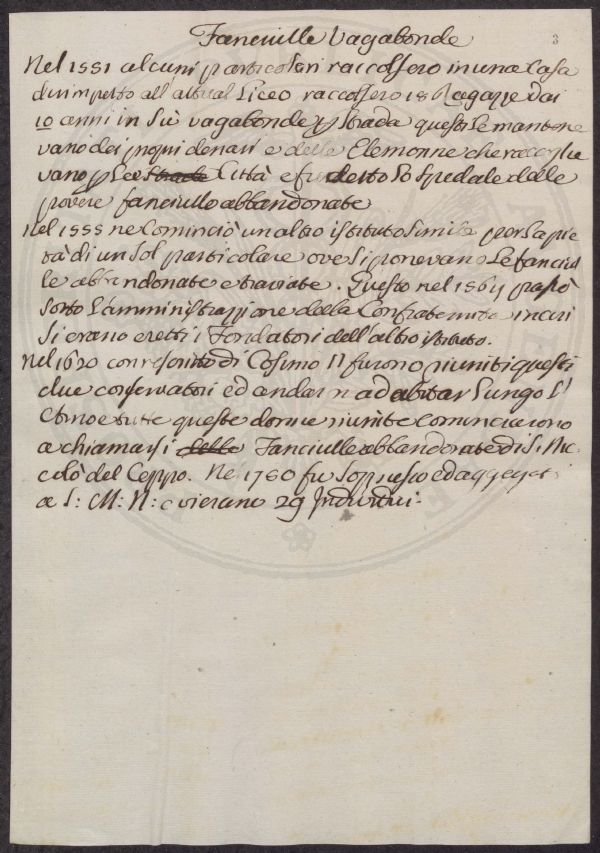 Fanciulle Vagabonde
3
Nel 1551 alcuni particolari raccolsero in una Casa
dirimpetto all'attual Liceo raccolsero 18 Ragazze dai
10 anni in sù vagabonde p strada queste le mantene
vano dei propri denari e delle Elemosine che raccoglie
vano p la Strade Città e fu detto lo Spedale delle
povere fanciulle abbandonate
Nel 1555 ne Cominciò un altro istituto Simile per la pie
tà di un Sol particolare ove Si ponevano Le fanciul
le abbandonate e traviate. Questo nel 1564 passò
Sotto L'amministrazione della Confraternita in cui
Si erano eretti i Fondatori dell'altro istituto.
Nel 1620 con rescritto di Cosimo II furono riuniti questi
due conservatori ed andarn ad abitar Lungo L'
Arno e tutte queste donne riunite Cominciarono
a chiamarsi delle Fanciulle abbandonate di S. Nic
colò del Ceppo. Nel 1780 fu Soppresso ed aggregat
a S: M: N: e vi erano 29 Individui.